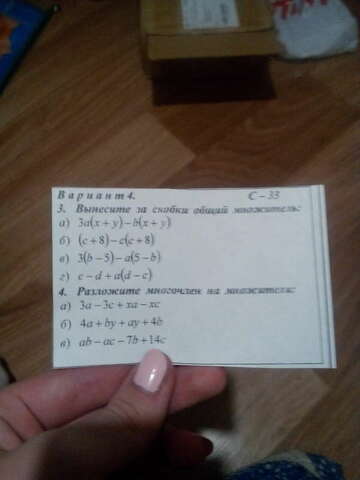 Вариант 4. С – 33
3. Вынесите за скобки общий множитель:
а) 3a(x + y) – b(x + y)
б) (c + 8) – c(c + 8)
в) 3(b – 5) – a(5 – b)
г) c – d + a(d – c)
4. Разложите многочлен на множители:
а) 3a – 3c + xa – xc
б) 4a + by + ay + 4b
в) ab – ac – 7b + 14c